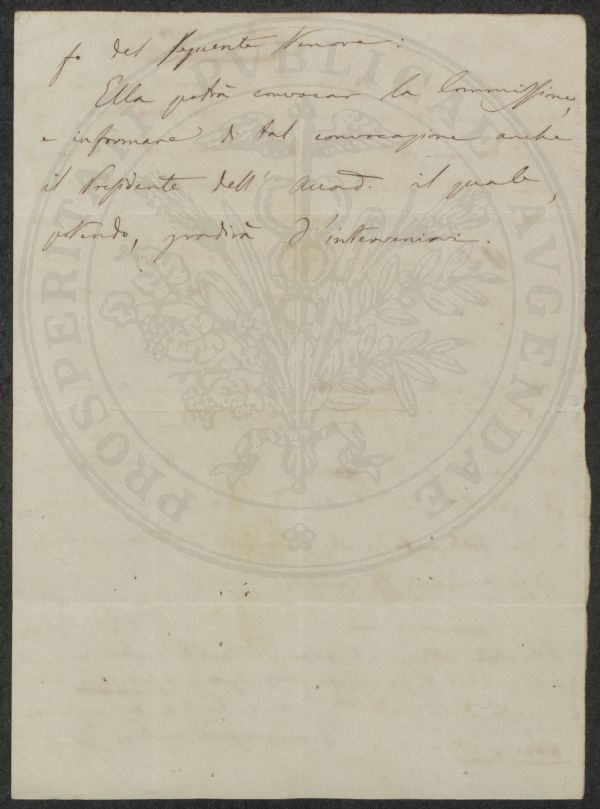 fo del seguente tenore:
Ella potrà convocar la Commissione,
e informare di tal convocazione anche
il Presidente dell' Accad. il quale,
potendo, gradirà d'intervenirvi.
PROSPERITATI PUBLICAE AUGENDAE